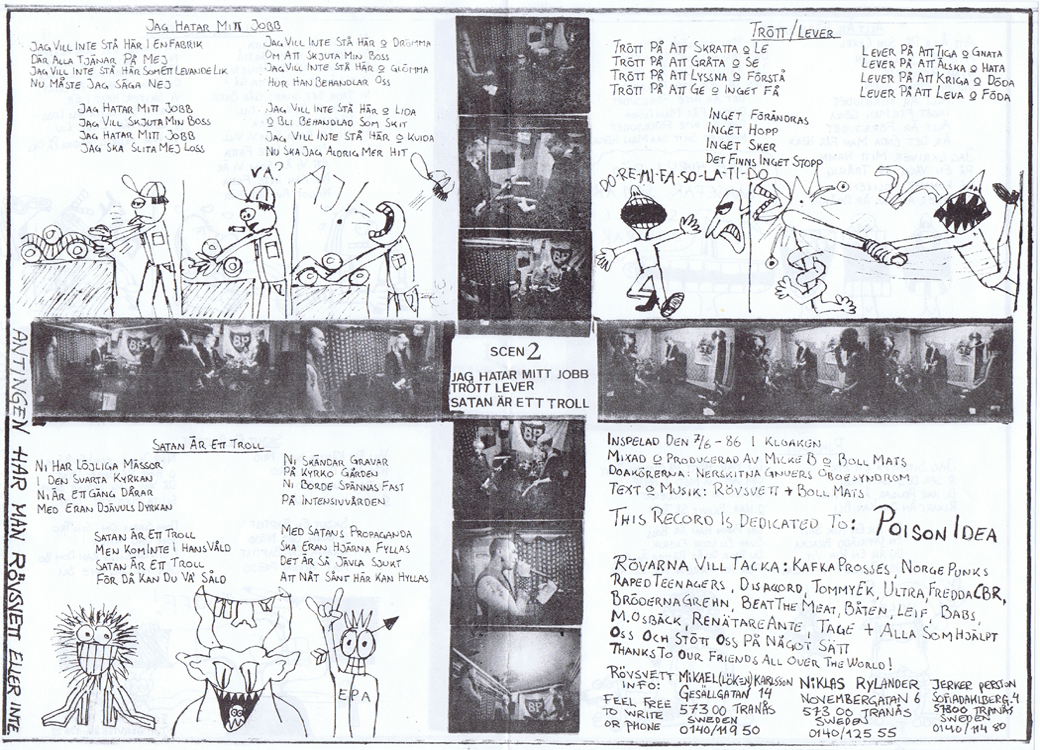 JAG HATAR MITT JOBB
JAG VILL INTE STÅ HÄR I EN FABRIK
DÄR ALLA TJÄNAR PÅ MEJ
JAG VILL INTE STÅ HÄR SOM ETT LEVANDE LIK
NU MÅSTE JAG SÄGA NEJ
JAG HATAR MITT JOBB
JAG VILL SKJUTA MIN BOSS
JAG HATAR MITT JOBB
JAG SKA SLITA MEJ LOSS
JAG VILL INTE STÅ HÄR O DRÖMMA
OM ATT SKJUTA MIN BOSS
JAG VILL INTE STÅ HÄR O GLÖMMA
HUR HAN BEHANDLAR OSS
JAG VILL INTE STÅ HÄR O LIDA
O BLI BEHANDLAD SOM SKIT
JAG VILL INTE STÅ HÄR O KVIDA
NU SKA JAG ALDRIG MER HIT
VA?
AJ!
TRÖTT/LEVER
TRÖTT PÅ ATT SKRATTA O LE
TRÖTT PÅ ATT GRÅTA O SE
TRÖTT PÅ ATT LYSSNA O FÖRSTÅ
TRÖTT PÅ ATT GE O INGET FÅ
LEVER PÅ ATT TIGA O GNATA
LEVER PÅ ATT ÄLSKA O HATA
LEVER PÅ ATT KRIGA O DÖDA
LEVER PÅ ATT LEVA O FÖDA
INGET FÖRÄNDRAS
INGET HOPP
INGET SKER
DET FINNS INGET STOPP
DO-RE-MI-FA-SO-LA-TI-DO
BP
BP
SCEN 2
JAG HATAR MITT JOBB
TRÖTT LEVER
SATAN ÄR ETT TROLL
BP
ANTINGEN HAR MAN RÖVSVETT ELLER INTE
SATAN ÄR ETT TROLL
NI HAR LÖJLIGA MÄSSOR
I DEN SVARTA KYRKAN
NI ÄR ETT GÄNG DÅRAR
MED ERAN DJÄVULS DYRKAN
SATAN ÄR ETT TROLL
MEN KOM INTE I HANS VÅLD
SATAN ÄR ETT TROLL
FÖR DÅ KAN DU VA' SÅLD
NI SKÄNDAR GRAVAR
PÅ KYRKO GÅRDEN
NI BORDE SPÄNNAS FAST
PÅ INTENSIVVÅRDEN
MED SATANS PROPAGANDA
SKA ERAN HJÄRNA FYLLAS
DET ÄR SÅ JÄVLA SJUKT
ATT NÅT SÅNT HÄR KAN HYLLAS
EPA
INSPELAD DEN 7/6-86 I KLOAKEN
MIXAD O PRODUCERAD AV MICKE B O BOLL MATS
DOAKÖRERNA: NERSKITNA GNUERS OBOESYNDROM
TEXT O MUSIK: RÖVSVETT + BOLL MATS
THIS RECORD IS DEDICATED TO: POISON IDEA
RÖVARNA VILL TACKA: KAFKA PROSSES, NORGE PUNKS
RAPED TEENAGERS, DISACORD, TOMMY EK, ULTRA, FREDDA CBR,
BRÖDERNA GREHN, BEAT THE MEAT, BÅTEN, LEIF, BABS,
M.OSBÄCK, RENÄTARE ANTE, TAGE + ALLA SOM HJÄLPT
OSS OCH STÖTT OSS PÅ NÅGOT SÄTT
THANKS TO OUR FRIENDS ALL OVER THE WORLD!
RÖVSVETT INFO:
FEEL FREE TO WRITE OR PHONE
MIKAEL (LÖKEN) KARLSSON
GESÄLLGATAN 14
573 00 TRANÅS
SWEDEN
0140/119 50
NIKLAS RYLANDER
NOVEMBERGATAN 6
573 00 TRANÅS
SWEDEN
0140/125 55
JERKER PERSSON
SOFIADAHLBERG. 4
57300 TRANÅS
SWEDEN
0140/114 80